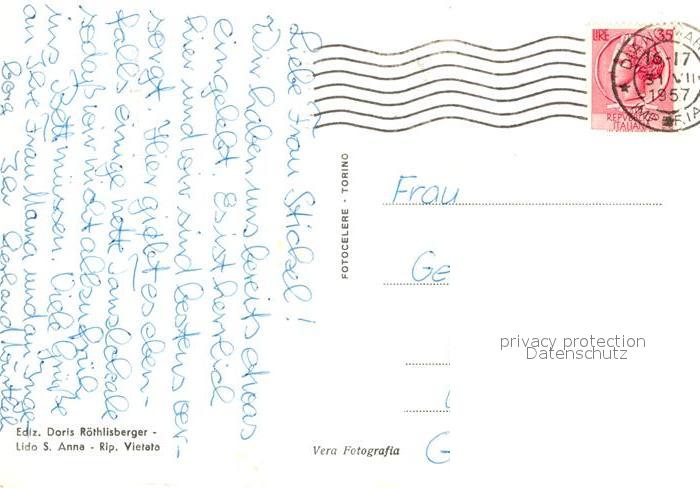 Liebe Frau Stickel!
Wir haben uns bereits etwas
eingelebt. Es ist herrlich
hier und wir sind bestens ver-
sorgt. Hier giebt es eben-
falls einige nette Tanzlokale
sodaß wir nicht allzu früh
ins Bett müssen. Viele Grüße
an Ihre Frau Mama und an Inge
Ihr Gerhard
Ediz. Doris Röthlisberger -
Lido S. Anna - Rip. Vietata
FOTOCELERE - TORINO
Vera Fotografia
LIRE 35
REPVBBLICA
ITALIANA
16-17
VII
1957
Frau
Ge
G
privacy protection
Datenschutz